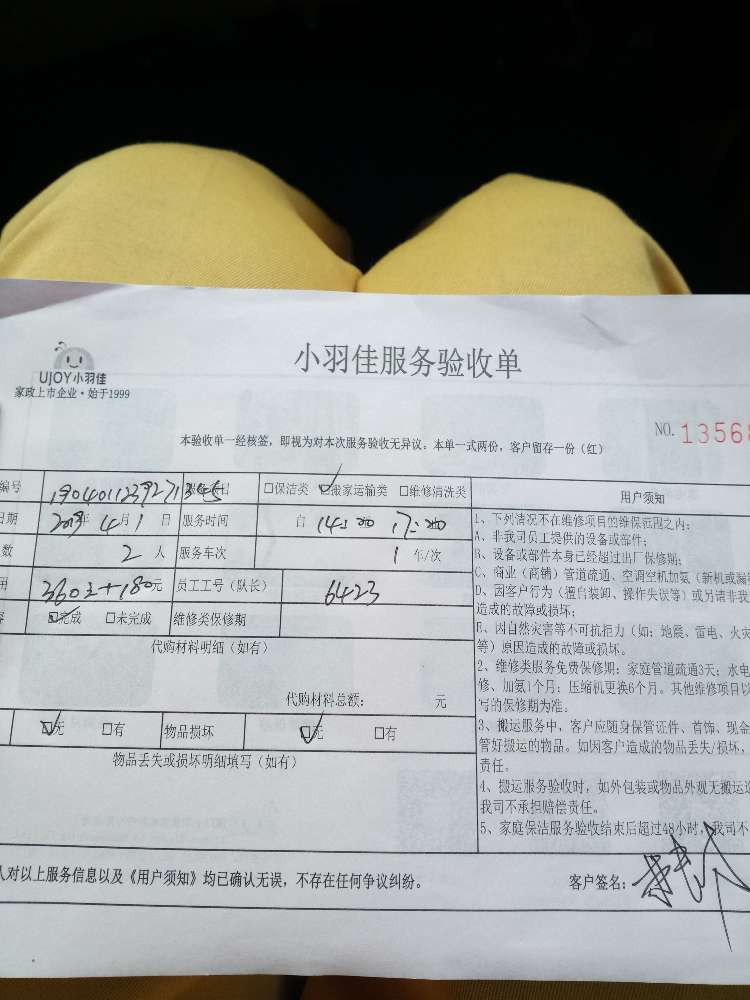 小羽佳服务验收单
UJOY小羽佳
家政上市企业·始于1999
NO. 13568
本验收单一经核签，即视为对本次服务验收无异议。本单一式两份，客户留存一份（红）
编号 □保洁类 ☑搬家运输类 □维修清洗类
用户须知
日期 2019年 4月 1 日 服务时间 自 14:00 17:00
数 2 人 服务车次 1 车/次
用 360元+180元 员工工号（队长） 6423
容 ☑完成 □未完成 维修类保修期
代购材料明细（如有）
代购材料总额： 元
☑无 □有 物品损坏 ☑无 □有
物品丢失或损坏明细填写（如有）
1、下列情况不在维修项目的维保范围之内：
A、非我司员工提供的设备或部件；
B、设备或部件本身已经超过出厂保修期；
C、商业（商铺）管道疏通、空调空机加氨（新机或漏
D、因客户行为（擅自装卸、操作失误等）或另请非我
造成的故障或损坏；
E、因自然灾害等不可抗拒力（如：地震、雷电、火灾
等）原因造成的故障或损坏。
2、维修类服务免费保修期：家庭管道疏通3天；水电
修、加氨1个月；压缩机更换6个月。其他维修项目以
写的保修期为准。
3、搬运服务中，客户应随身保管证件、首饰、现金
管好搬运的物品。如因客户造成的物品丢失/损坏，
责任。
4、搬运服务验收时，如外包装或物品外观无搬运造
我司不承担赔偿责任。
5、家庭保洁服务验收结束后超过48小时，我司不
人对以上服务信息以及《用户须知》均已确认无误，不存在任何争议纠纷。
客户签名：